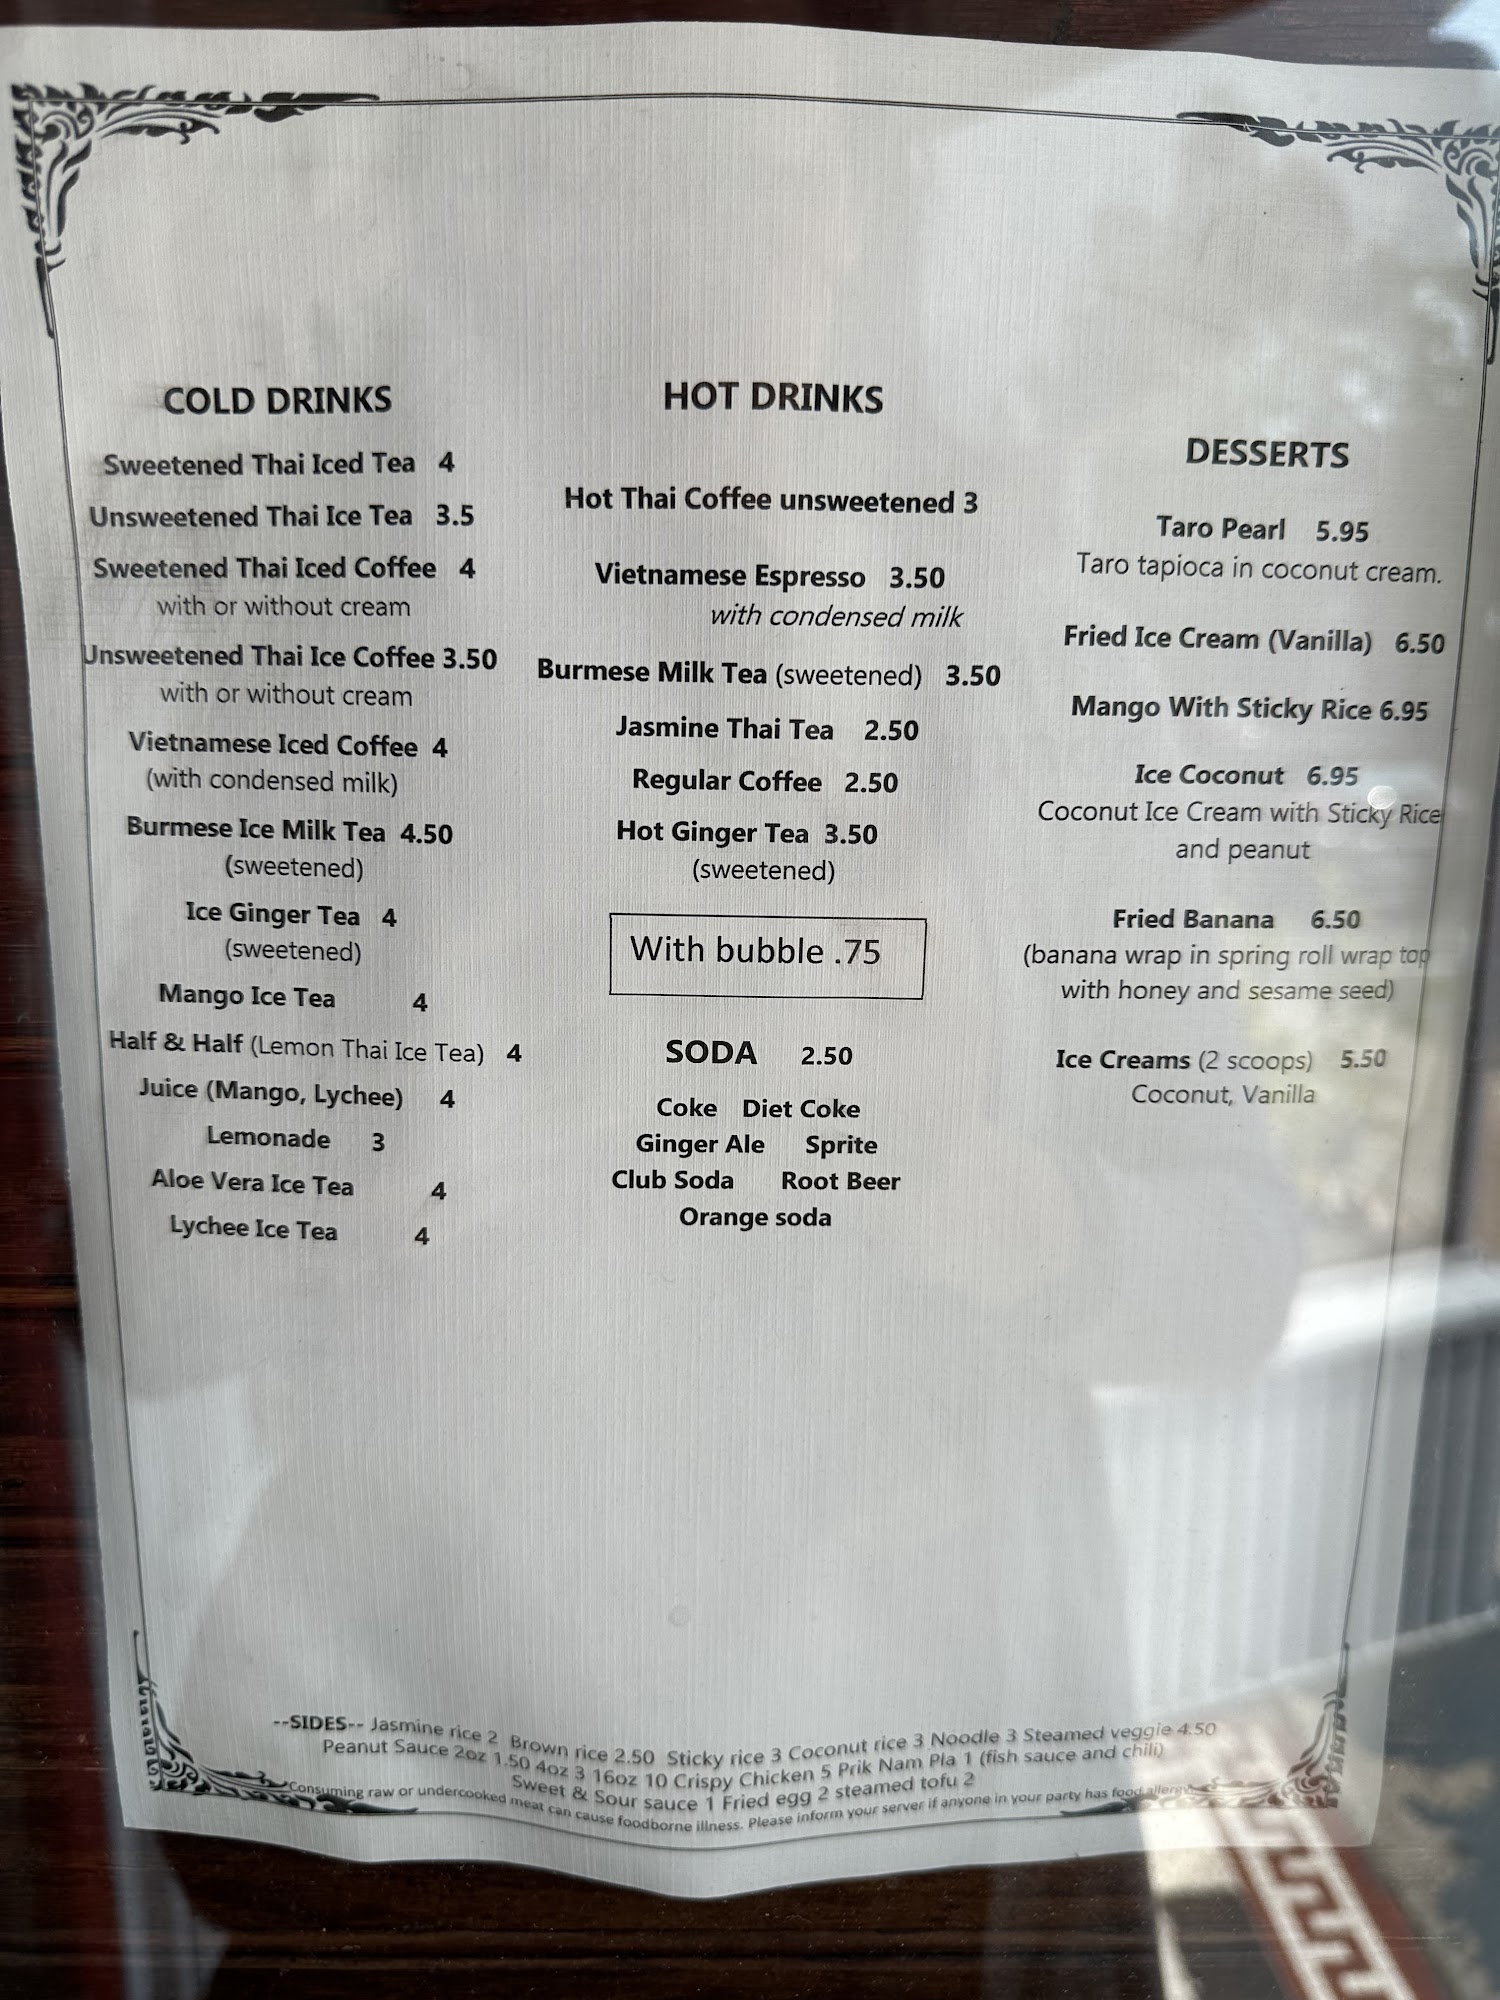 COLD DRINKS
Sweetened Thai Iced Tea 4
Unsweetened Thai Ice Tea 3.5
Sweetened Thai Iced Coffee 4
with or without cream
Unsweetened Thai Ice Coffee 3.50
with or without cream
Vietnamese Iced Coffee 4
(with condensed milk)
Burmese Ice Milk Tea 4.50
(sweetened)
Ice Ginger Tea 4
(sweetened)
Mango Ice Tea 4
Half & Half (Lemon Thai Ice Tea) 4
Juice (Mango, Lychee) 4
Lemonade 3
Aloe Vera Ice Tea 4
Lychee Ice Tea 4
HOT DRINKS
Hot Thai Coffee unsweetened 3
Vietnamese Espresso 3.50
with condensed milk
Burmese Milk Tea (sweetened) 3.50
Jasmine Thai Tea 2.50
Regular Coffee 2.50
Hot Ginger Tea 3.50
(sweetened)
With bubble .75
SODA 2.50
Coke Diet Coke
Ginger Ale Sprite
Club Soda Root Beer
Orange soda
DESSERTS
Taro Pearl 5.95
Taro tapioca in coconut cream.
Fried Ice Cream (Vanilla) 6.50
Mango With Sticky Rice 6.95
Ice Coconut 6.95
Coconut Ice Cream with Sticky Rice
and peanut
Fried Banana 6.50
(banana wrap in spring roll wrap top
with honey and sesame seed)
Ice Creams (2 scoops) 5.50
Coconut, Vanilla
--SIDES-- Jasmine rice 2 Brown rice 2.50 Sticky rice 3 Coconut rice 3 Noodle 3 Steamed veggie 4.50
Peanut Sauce 2oz 1.50 4oz 3 16oz 10 Crispy Chicken 5 Prik Nam Pla 1 (fish sauce and chili)
Sweet & Sour sauce 1 Fried egg 2 steamed tofu 2
Consuming raw or undercooked meat can cause foodborne illness. Please inform your server if anyone in your party has food allergy